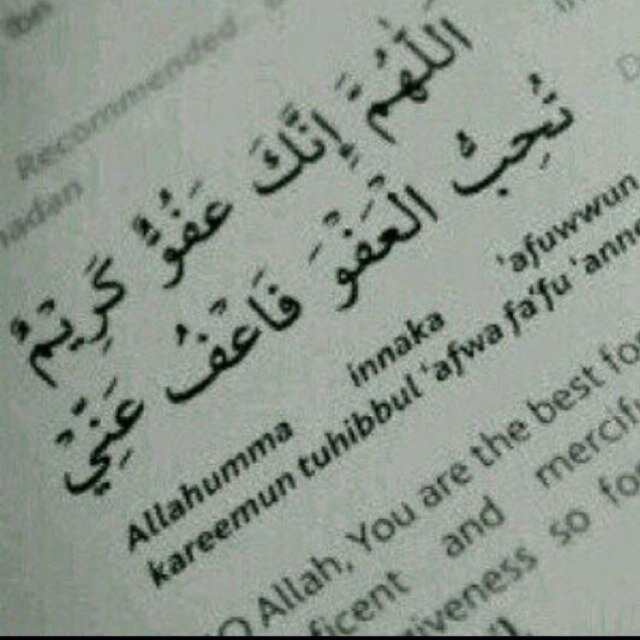 Recommended
اللّٰهُمَّ إِنَّكَ عَفُوٌّ كَرِيْمٌ
تُحِبُّ الْعَفْوَ فَاعْفُ عَنِّيْ
Allahumma innaka 'afuwwun
kareemun tuhibbul 'afwa fa'fu 'anne
O Allah, You are the best for
ficent and mercifu
giveness so for